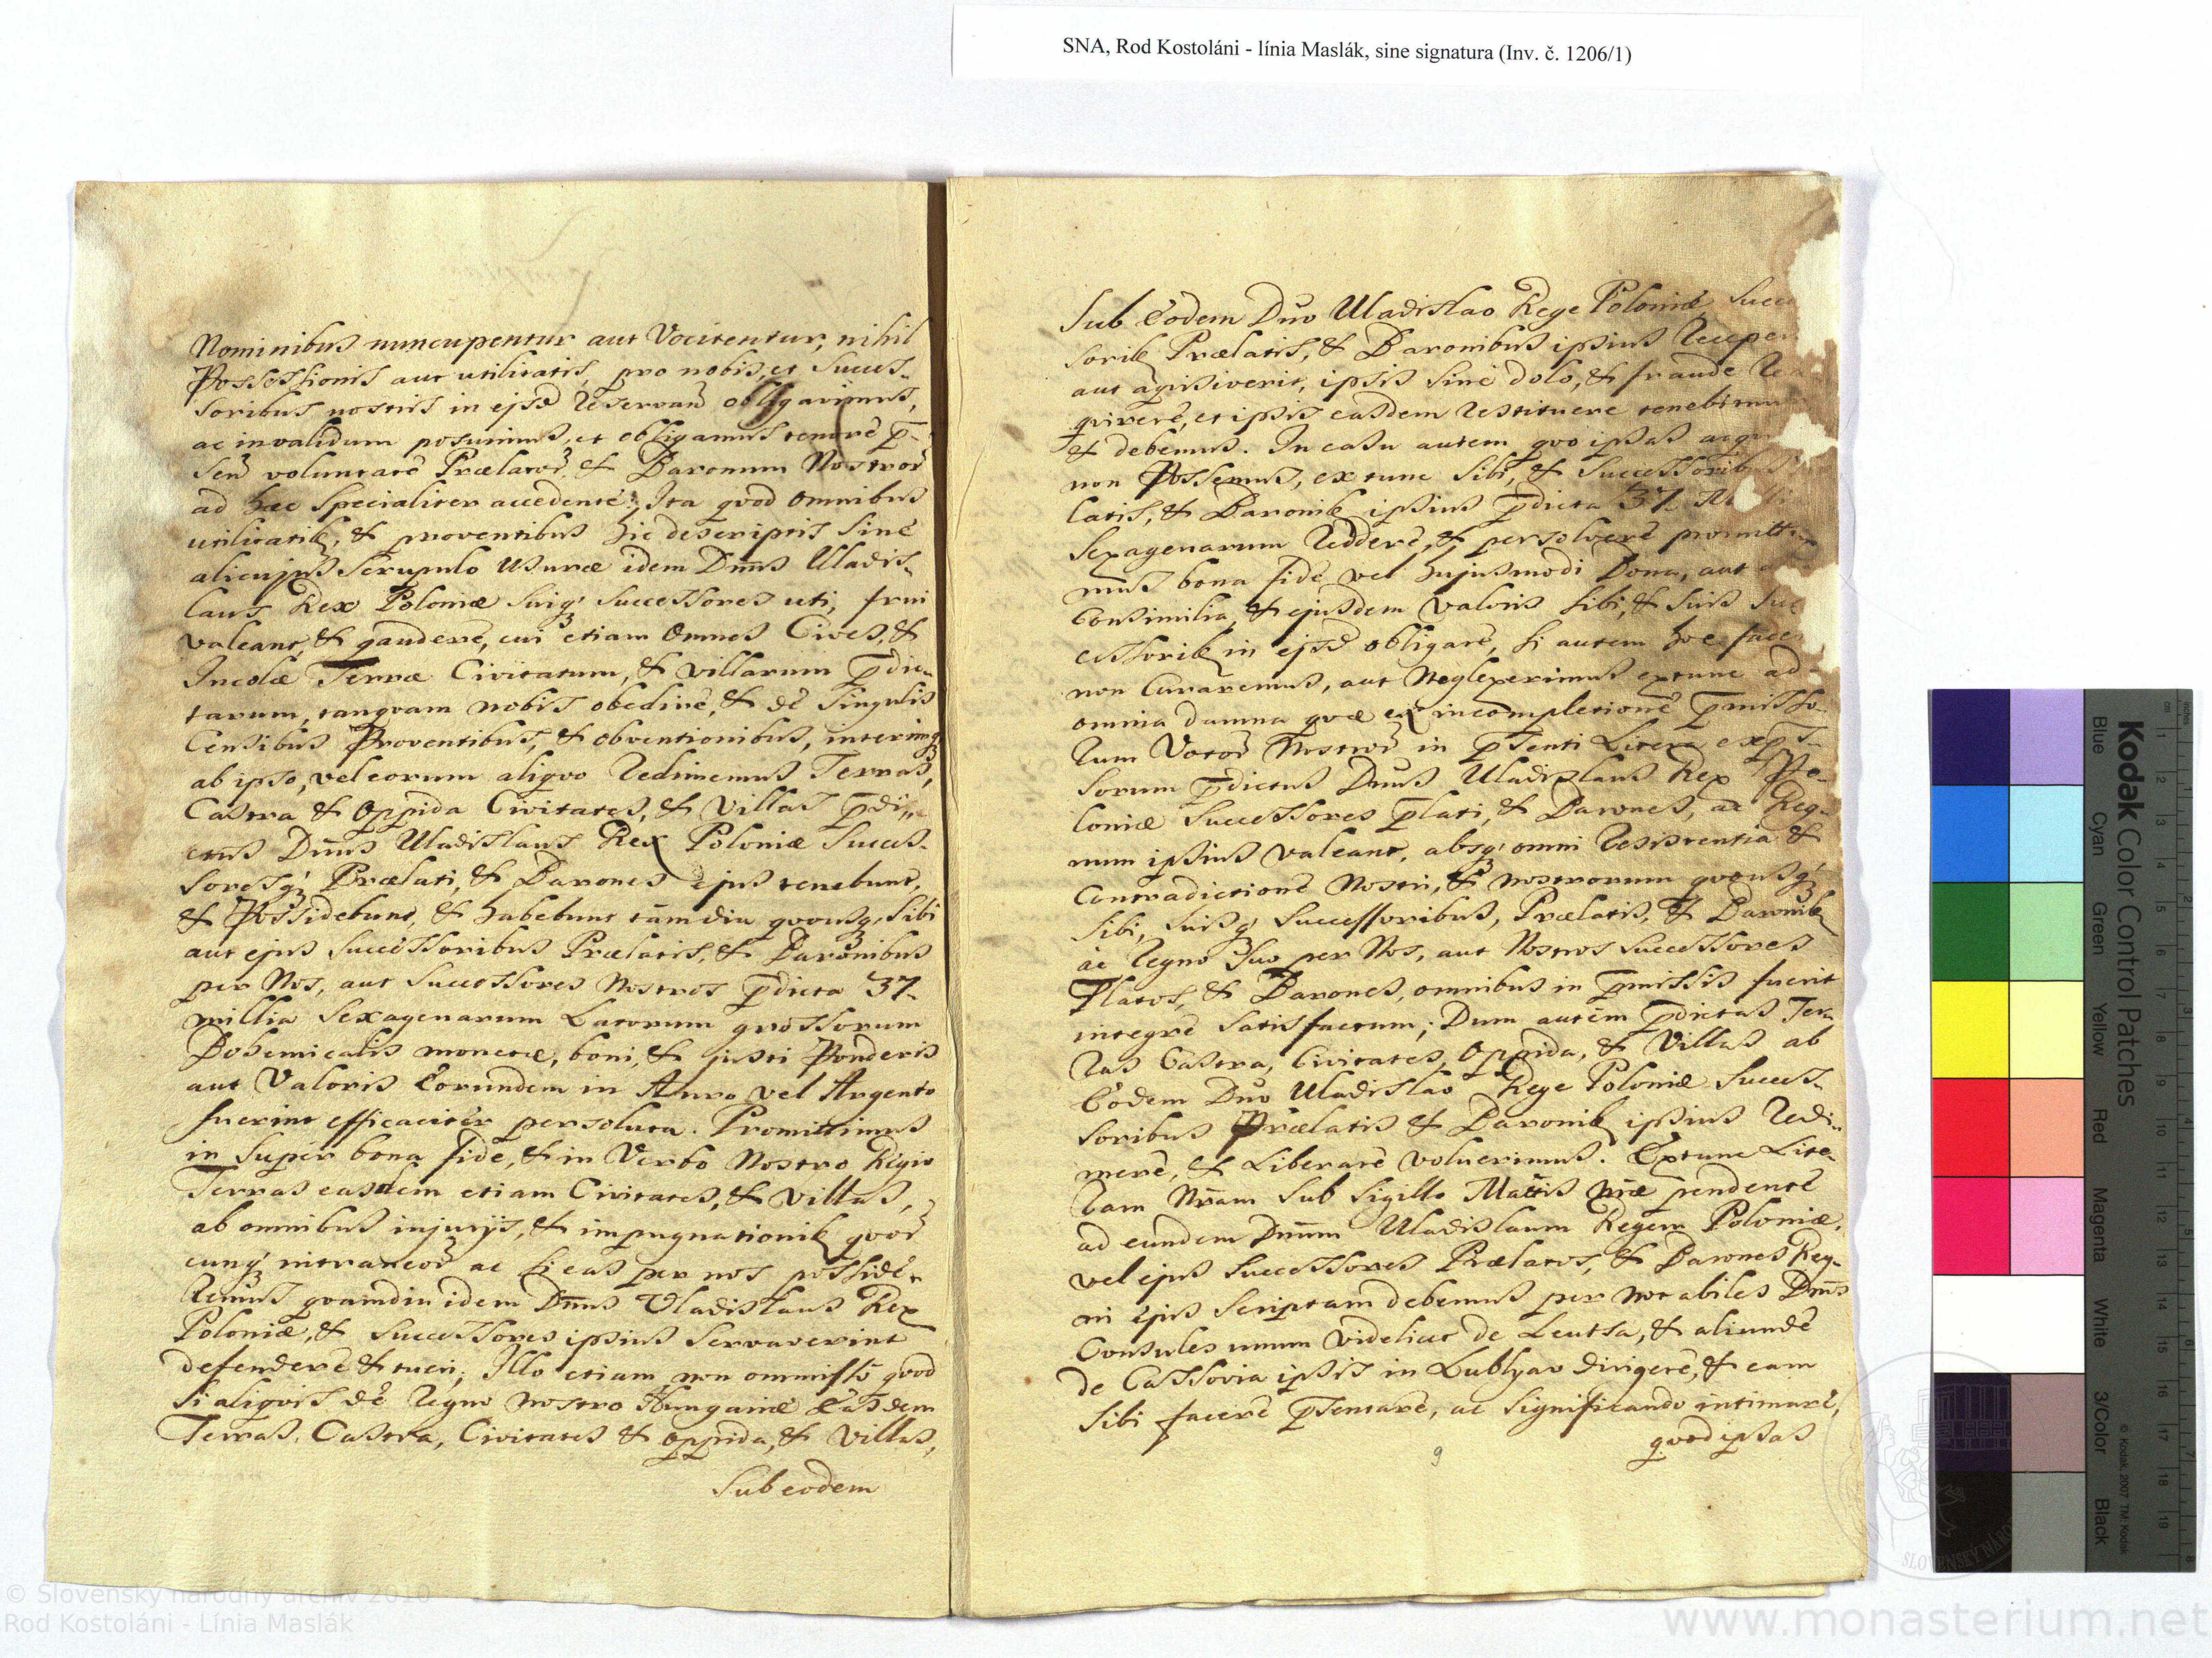 SNA, Rod Kostoláni - línia Maslák, sine signatura (Inv. č. 1206/1)
Nominibus nuncupentur aut Vocitentur, nihil
Possessionis aut utilitatis, pro nobis, et Succes-
soribus nostris in ejsd Reservand obligavimus,
ac invalidum posuimus, et obligamus tenore p̄-
sen̄ voluntate Prælator̄ & Baronum Nostror̄
ad hæc Specialiter accedente: Ita qvod omnibus
utilitatib, & proventibus hic descriptis Sinè
alicujus Scrupulo Usuræ idem Dnūs Uladis-
laus Rex Poloniæ Suiq; Successores uti, frui
valeant, & gaudere, cui etiam Omnes Cives, &
Incolæ Terræ Civitatum, & villarum p̄dic-
tarum, tanqvam nobis obedire, & dè Singulis
Censibus Proventibus, & obventionibus, interimq;
ab ipso, vel eorum aliqvo Redimemus Terras,
Castra & Oppida Civitates, & Villas p̄di-
ctus Dnūs Uladislaus Rex Poloniæ Succes-
soresq; Prælati, & Barones ejus tenebunt,
& Possidebunt, & habebunt tamdiu qvousq; Sibi
aut ejus Successoribus Prælatis, & Baronibus
per Nos, aut Successores Nostros p̄dicta 37-
millia Sexagenarum Latorum grossorum
Bohemicalis monetæ, boni, & justi Ponderis
aut Valoris Eorundem in Auro vel Argento
fuerint efficacitèr persoluta. Promittimus
in Supèr bona fide, & in Verbo Nostro Regio
Terras easdem etiam Civitates, & Villas,
ab omnibus injurijs, & impugnationib qvor̄
cunq; ac si eas per nos possidè-
remus qvamdiu idem Dnūs Vladislaus Rex
Poloniæ, & Successores ipsius Servaverint
defendere & tueri; Illo etiam non ommisso qvod
Si aliqvis dè Regno Nostro Hungariæ Easdem
Terras, Castra, Civitates & oppida, & Villas,
Sub eodem
Sub Eodem Dnō Uladislao Rege Poloniæ Succes
sorib Prælatis, & Baronibus ipsius Recuper
aut aqvisiverit, ipsis sinè dolo, & fraude
qvirere, et ipsis easdem Restituere tenebimur
& debemus. In casu autem qvo ipsas
non Possemus, ex tunc Sibi, & Successoribus
latis, & Baronib ipsius p̄dicta 37
Sexagenarum Reddere, & persolvere promitti
mus bona fide vel hujusmodi Bona, aut
Consimilia, & ejusdem Valoris Sibi, & Suis Suc
cessorib in ejsd obligare, Si autem hoc face
non Curaremus, aut Neglexerimus extunc ad
omnia damna qvæ ex incompletionè p̄misso-
rum Votor̄ Nostror̄ in p̄senti Litera exp̄s-
sorum p̄dictus Dnūs Uladislaus Rex Po-
loniæ Successores p̄lati, & Barones, ac Reg-
num ipsius valeant, absq; omni Resistentia &
Contradictionè Nostri, & nostrorum qvousq;
Sibi, Suisq; Successoribus, Prælatis, & Baronib
ac Regno Suo per Nos, aut Nostros Successores
P̄latos, & Barones, omnibus in p̄missis fuerit
integrè Satisfactum; Dum autèm p̄dictas Ter-
ras Castra, Civitates, Oppida, & Villas ab
Eodem Dnō Uladislao Rege Poloniæ Succes-
soribus Prælatis & Baronib ipsius Redi-
mere, & Liberare voluerimus. Extunc Lite-
ram Nr̄am Sub Sigillo Mattis nr̄æ pendente
ad eundem Dnūm Uladislaum Regem Poloniæ,
vel ejus Successores Prælatos, & Barones Reg-
ni ejus Scriptam debemus per notabiles Dnōs
Consules unum videlicet de Leutsa, & aliunde
de Cassovia ipsis in Lublyav dirigere, & eam
Sibi facere p̄sentare, ac Significando intimare,
qvod ipsas
9
Kodak Color Control Patches
Blue Cyan Green Yellow Red Magenta White 3/Color Black
© Kodak, 2007 TM: Kodak
© Slovenský národný archív 2010
Rod Kostoláni - Línia Maslák
www.monasterium.net